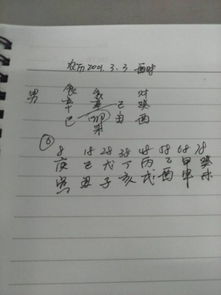 农历2001.3.3 酉时
食 食 财
男 辛 辛 己 癸
巳 卯 丑 酉
杀
⑥ 8 18 28 38 48 58 68 78
庚 己 戊 丁 丙 乙 甲 癸
寅 丑 子 亥 戌 酉 申 未